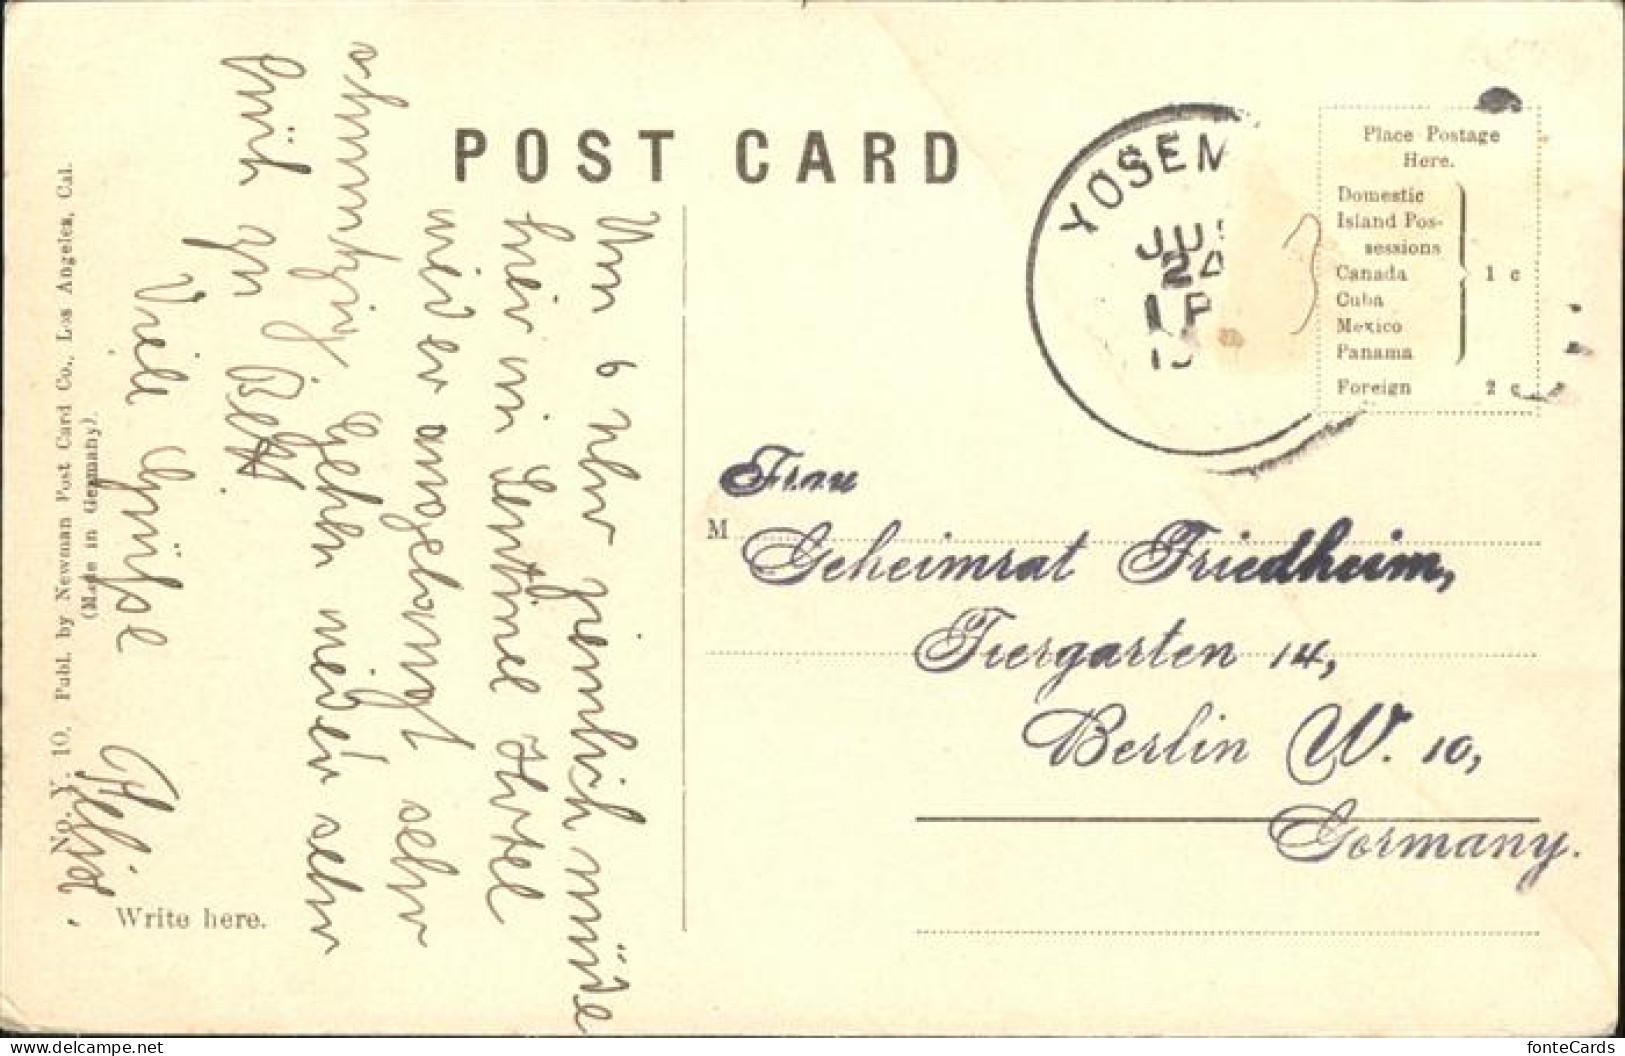 POST CARD
YOSEM
JU
24
1 P
Place Postage
Here.
Domestic
Island Pos-
sessions
Canada
Cuba
Mexico
Panama
1 c
Foreign 2 c
Um 6 Uhr ziemlich müde
hier im Hotel
wieder angelangt sehr
Gehen wieder sehr
früh zu Bett.
Viele Grüsse
M
Frau
Geheimrat Friedheim,
Tiergarten 14,
Berlin W. 10,
Germany.
Write here.
No. Y. 10. Publ. by Newman Post Card Co., Los Angeles, Cal.
(Made in Germany).
fonteCards